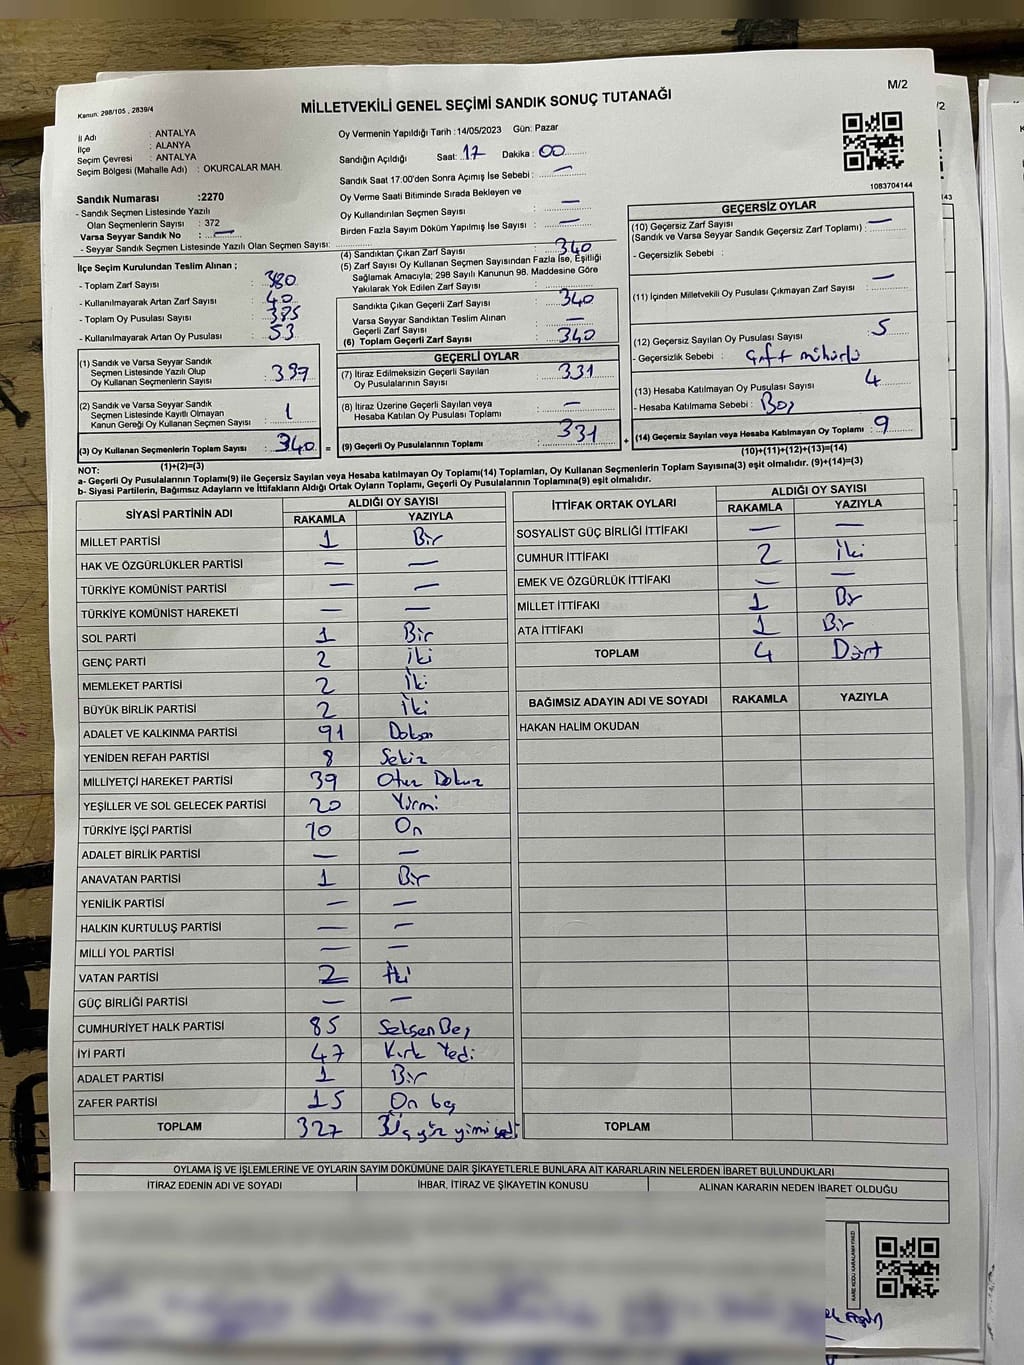 Kanun: 298/105 , 2839/4
M/2
MİLLETVEKİLİ GENEL SEÇİMİ SANDIK SONUÇ TUTANAĞI
İl Adı : ANTALYA
İlçe : ALANYA
Seçim Çevresi : ANTALYA
Seçim Bölgesi (Mahalle Adı) : OKURCALAR MAH.
Oy Vermenin Yapıldığı Tarih : 14/05/2023 Gün: Pazar
Sandığın Açıldığı Saat: 17 Dakika : 00
Sandık Saat 17:00'den Sonra Açımış İse Sebebi : —
Oy Verme Saati Bitiminde Sırada Bekleyen ve
Oy Kullandırılan Seçmen Sayısı —
Birden Fazla Sayım Döküm Yapılmış İse Sayısı : —
1083704144
Sandık Numarası :2270
- Sandık Seçmen Listesinde Yazılı
Olan Seçmenlerin Sayısı : 372
Varsa Seyyar Sandık No : —
- Seyyar Sandık Seçmen Listesinde Yazılı Olan Seçmen Sayısı:
İlçe Seçim Kurulundan Teslim Alınan ;
- Toplam Zarf Sayısı : 380
- Kullanılmayarak Artan Zarf Sayısı : 40
- Toplam Oy Pusulası Sayısı : 385
- Kullanılmayarak Artan Oy Pusulası : 53
(1) Sandık ve Varsa Seyyar Sandık
Seçmen Listesinde Yazılı Olup
Oy Kullanan Seçmenlerin Sayısı : 339
(2) Sandık ve Varsa Seyyar Sandık
Seçmen Listesinde Kayıtlı Olmayan
Kanun Gereği Oy Kullanan Seçmen Sayısı : 1
(3) Oy Kullanan Seçmenlerin Toplam Sayısı : 340 =
(1)+(2)=(3)
(4) Sandıktan Çıkan Zarf Sayısı : 340
(5) Zarf Sayısı Oy Kullanan Seçmen Sayısından Fazla İse, Eşitliği
Sağlamak Amacıyla; 298 Sayılı Kanunun 98. Maddesine Göre
Yakılarak Yok Edilen Zarf Sayısı :
Sandıkta Çıkan Geçerli Zarf Sayısı : 340
Varsa Seyyar Sandıktan Teslim Alınan
Geçerli Zarf Sayısı : —
(6) Toplam Geçerli Zarf Sayısı : 340
GEÇERLİ OYLAR
(7) İtiraz Edilmeksizin Geçerli Sayılan
Oy Pusulalarının Sayısı : 331
(8) İtiraz Üzerine Geçerli Sayılan veya
Hesaba Katılan Oy Pusulası Toplamı : —
(9) Geçerli Oy Pusulalarının Toplamı : 331 +
GEÇERSİZ OYLAR
(10) Geçersiz Zarf Sayısı —
(Sandık ve Varsa Seyyar Sandık Geçersiz Zarf Toplamı) :
- Geçersizlik Sebebi :
(11) İçinden Milletvekili Oy Pusulası Çıkmayan Zarf Sayısı : —
(12) Geçersiz Sayılan Oy Pusulası Sayısı : 5
- Geçersizlik Sebebi : Çift mühürlü
(13) Hesaba Katılmayan Oy Pusulası Sayısı 4
- Hesaba Katılmama Sebebi : Boş
(14) Geçersiz Sayılan veya Hesaba Katılmayan Oy Toplamı : 9
(10)+(11)+(12)+(13)=(14)
NOT:
a- Geçerli Oy Pusulalarının Toplamı(9) ile Geçersiz Sayılan veya Hesaba katılmayan Oy Toplamı(14) Toplamları, Oy Kullanan Seçmenlerin Toplam Sayısına(3) eşit olmalıdır. (9)+(14)=(3)
b- Siyasi Partilerin, Bağımsız Adayların ve İttifakların Aldığı Ortak Oyların Toplamı, Geçerli Oy Pusulalarının Toplamına(9) eşit olmalıdır.
SİYASİ PARTİNİN ADI ALDIĞI OY SAYISI
RAKAMLA YAZIYLA
MİLLET PARTİSİ 1 Bir
HAK VE ÖZGÜRLÜKLER PARTİSİ — —
TÜRKİYE KOMÜNİST PARTİSİ — —
TÜRKİYE KOMÜNİST HAREKETİ — —
SOL PARTİ 1 Bir
GENÇ PARTİ 2 İki
MEMLEKET PARTİSİ 2 İki
BÜYÜK BİRLİK PARTİSİ 2 İki
ADALET VE KALKINMA PARTİSİ 91
YENİDEN REFAH PARTİSİ 8 Sekiz
MİLLİYETÇİ HAREKET PARTİSİ 39 Otuz Dokuz
YEŞİLLER VE SOL GELECEK PARTİSİ 20 Yirmi
TÜRKİYE İŞÇİ PARTİSİ 10 On
ADALET BİRLİK PARTİSİ — —
ANAVATAN PARTİSİ 1 Bir
YENİLİK PARTİSİ — —
HALKIN KURTULUŞ PARTİSİ — —
MİLLİ YOL PARTİSİ — —
VATAN PARTİSİ 2 İki
GÜÇ BİRLİĞİ PARTİSİ — —
CUMHURİYET HALK PARTİSİ 85 Seksen Beş
İYİ PARTİ 47 Kırk Yedi
ADALET PARTİSİ 1 Bir
ZAFER PARTİSİ 15 On beş
TOPLAM 327 Üç yüz yirmi yedi
İTTİFAK ORTAK OYLARI ALDIĞI OY SAYISI
RAKAMLA YAZIYLA
SOSYALİST GÜÇ BİRLİĞİ İTTİFAKI — —
CUMHUR İTTİFAKI 2 İki
EMEK VE ÖZGÜRLÜK İTTİFAKI — —
MİLLET İTTİFAKI 1 Bir
ATA İTTİFAKI 1 Bir
TOPLAM 4 Dört
BAĞIMSIZ ADAYIN ADI VE SOYADI RAKAMLA YAZIYLA
HAKAN HALİM OKUDAN
TOPLAM
OYLAMA İŞ VE İŞLEMLERİNE VE OYLARIN SAYIM DÖKÜMÜNE DAİR ŞİKAYETLERLE BUNLARA AİT KARARLARIN NELERDEN İBARET BULUNDUKLARI
İTİRAZ EDENİN ADI VE SOYADI İHBAR, İTİRAZ VE ŞİKAYETİN KONUSU ALINAN KARARIN NEDEN İBARET OLDUĞU